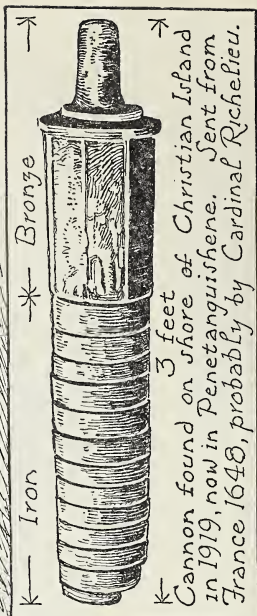 Iron Bronze
3 feet
Cannon found on shore of Christian Island
in 1919, now in Penetanguishene. Sent from
France 1648, probably by Cardinal Richelieu.